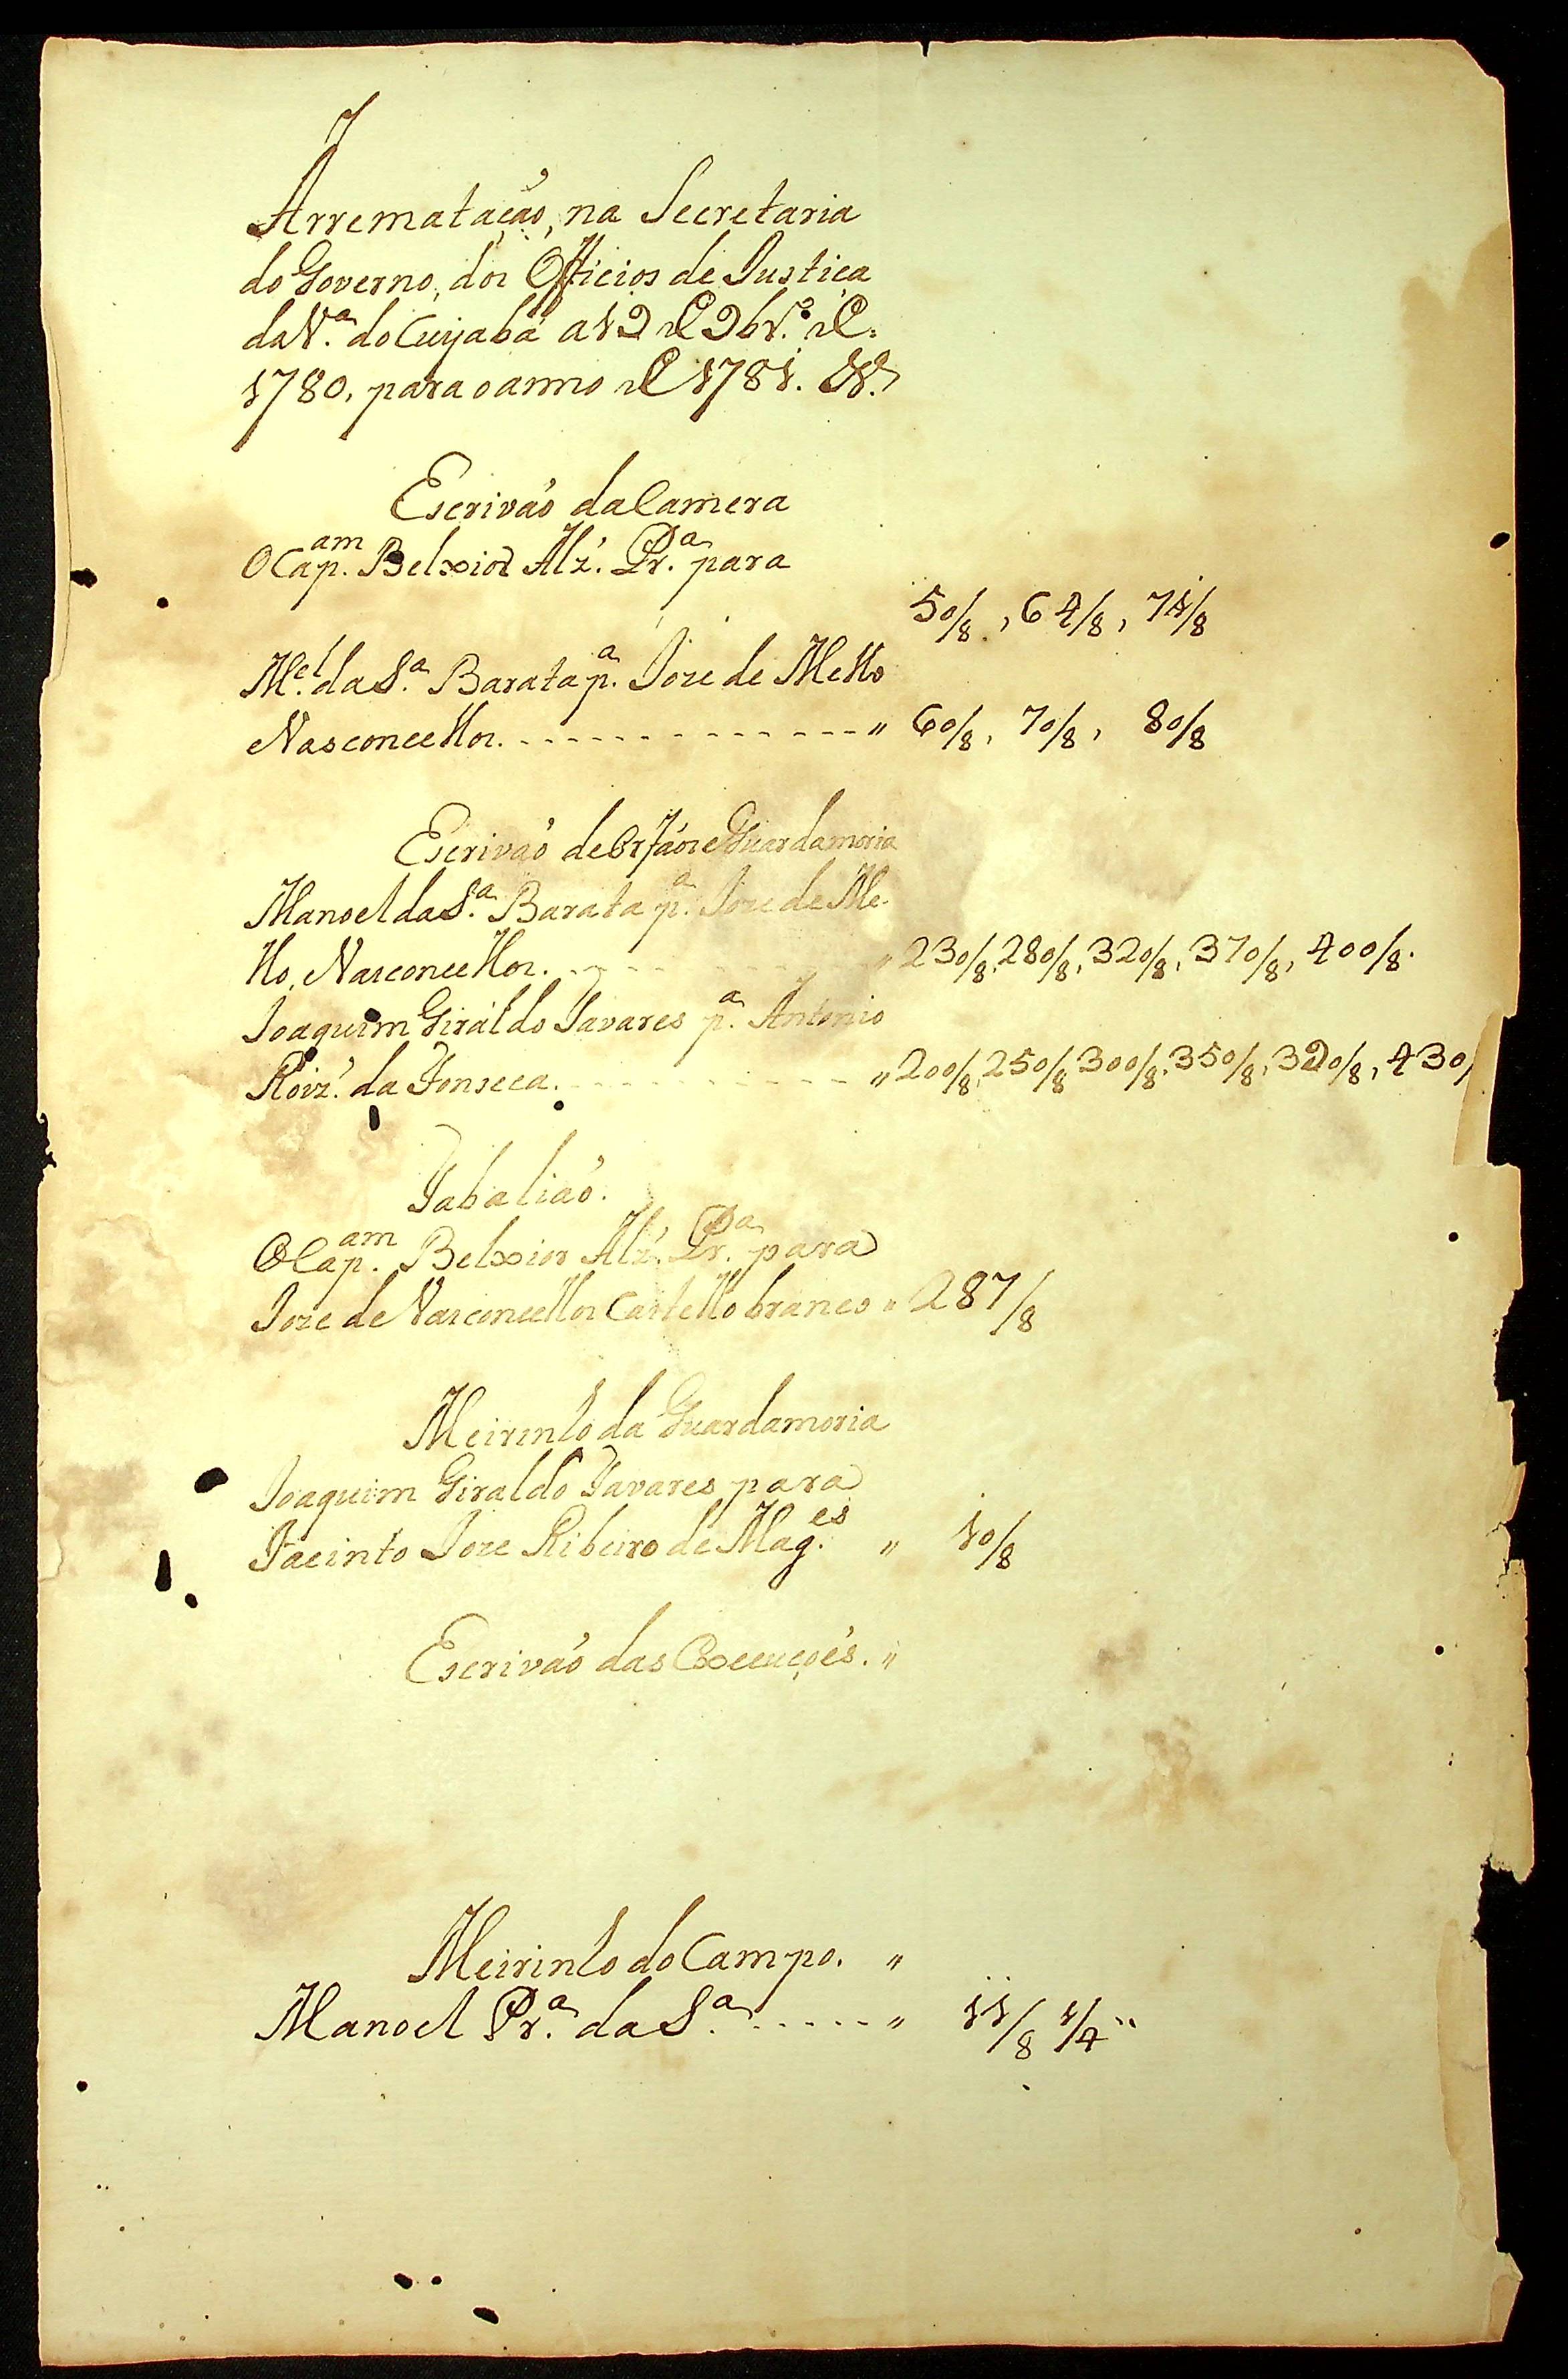 Arrematação, na Secretaria
do Governo, dos Officios de Justiça
da V.ª do Cuyabá a 19 de 9br.º de
1780, para o anno de 1781. &.ª
Escrivaõ da Camera
O Cap.am Belxior Alz'. Pr.ª para
50/8, 64/8, 71/8
M.el da S.ª Barata p.ª Joze de Mello
Vasconcellos. - - - - - - - - - - - - - " 60/8, 70/8, 80/8
Escrivaõ de Orfáos e Guardamoria
Manoel da S.ª Barata p.ª Joze de Me-
llo, Vasconcellos. - - - - - - - - - - " 230/8, 280/8, 320/8, 370/8, 400/8.
Joaquim Giraldo Tavares p.ª Antonio
Roiz'. da Fonseca. - - - - - - - - - - " 200/8, 250/8, 300/8, 350/8, 390/8, 430/
Tabaliaõ.
O Cap.am Belxior Alz'. Pr.ª para
Joze de Vasconcellos Castello branco " 287/8
Meirinho da Guardamoria
Joaquim Giraldo Tavares para
Jacinto Joze Ribeiro de Mag.es " 10/8
Escrivaõ das Execuçoẽs. "
Meirinho do Campo. "
Manoel Pr.ª da S.ª - - - - - " 11/8 1/4 "